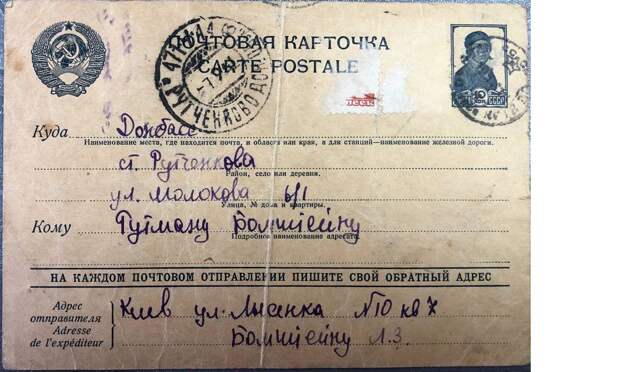 ПОЧТОВАЯ КАРТОЧКА
CARTE POSTALE
РУТЧЕНКОВО ДОН
10 СССР
Куда Донбасс
Наименование места, где находится почта, и области или края, а для станций—наименование железной дороги.
ст. Рутченкова
Район, село или деревня.
ул. Молокова 6/1
Улица, № дома и квартиры.
Кому Гутману Бомштейну
Подробное наименование адресата.
НА КАЖДОМ ПОЧТОВОМ ОТПРАВЛЕНИИ ПИШИТЕ СВОЙ ОБРАТНЫЙ АДРЕС
Адрес отправителя
Adresse de l'expéditeur
Киев ул. Лысенка №10 кв 7
Бомштейну Л.З.